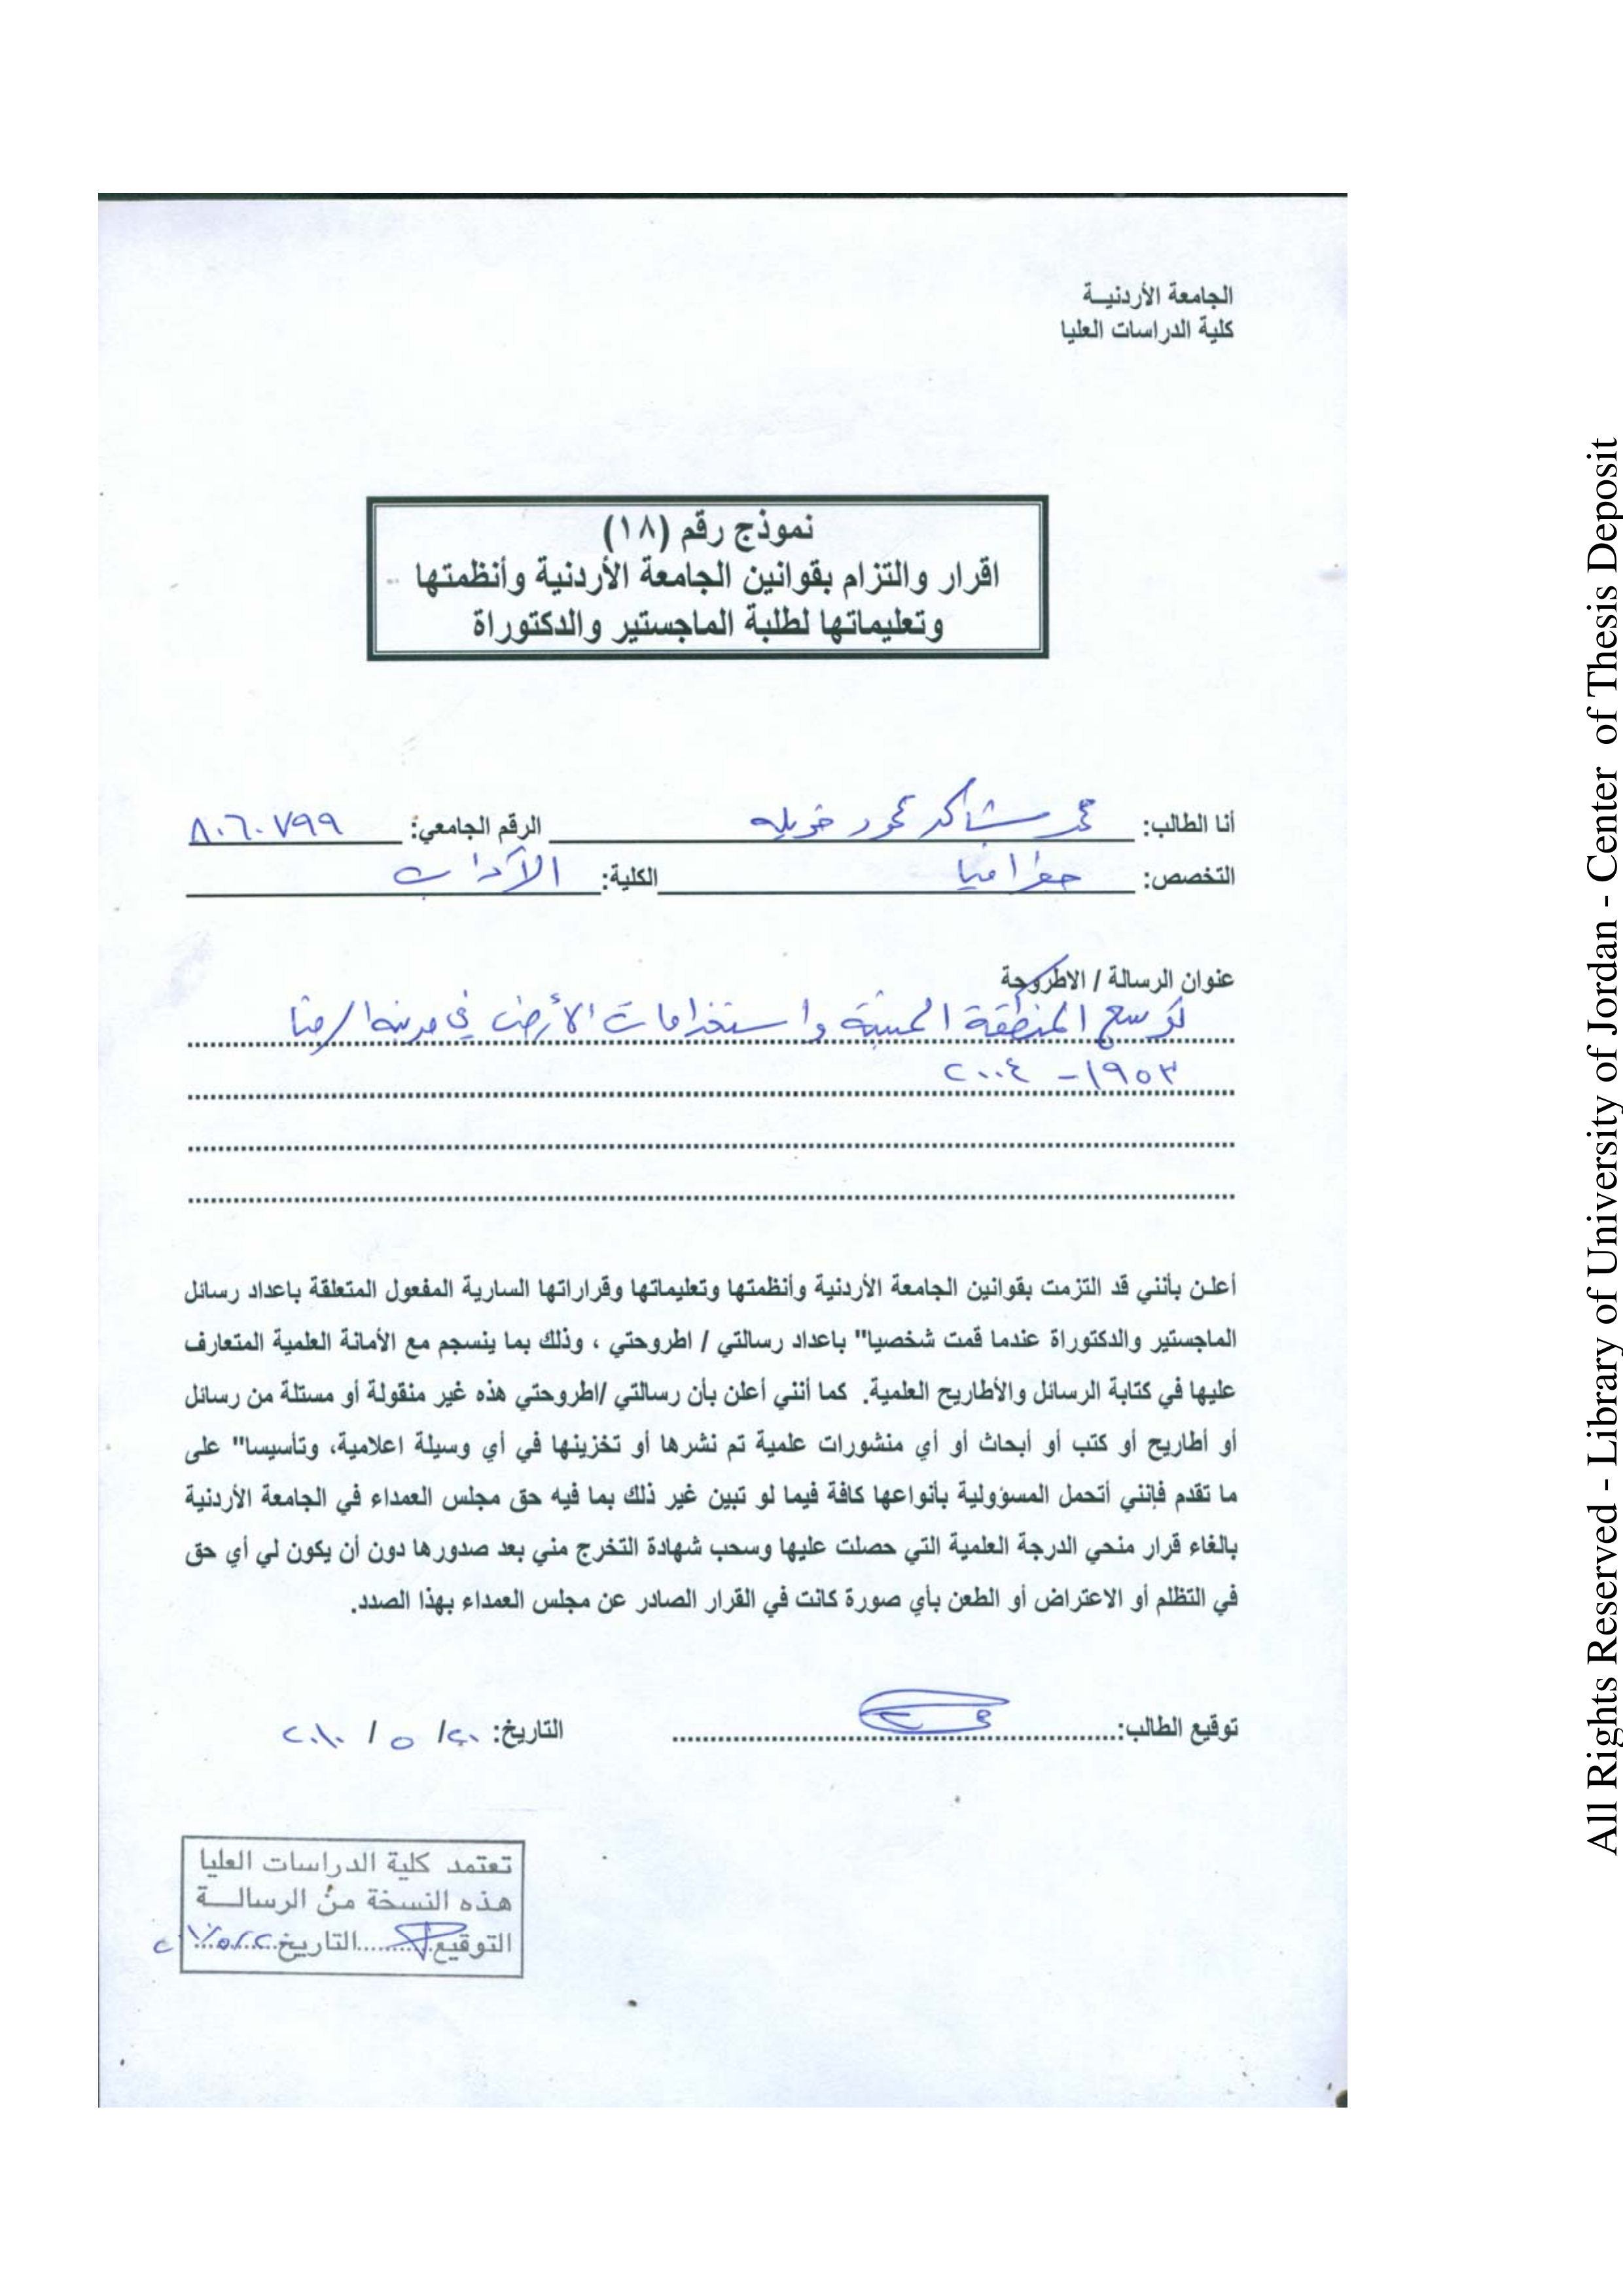 الجامعة الأردنيـة
كلية الدراسات العليا
نموذج رقم (١٨)
اقرار والتزام بقوانين الجامعة الأردنية وأنظمتها
وتعليماتها لطلبة الماجستير والدكتوراة
أنا الطالب: محمد شاكر محمود خويله الرقم الجامعي: ٨٠٦٠٧٩٩
التخصص: جغرافيا الكلية: الآداب
عنوان الرسالة / الاطروحة
توسع المنطقة المبنية واستخدامات الأرض في مدينة الرمثا
١٩٥٣ - ٢٠٠٤
أعلـن بأنني قد التزمت بقوانين الجامعة الأردنية وأنظمتها وتعليماتها وقراراتها السارية المفعول المتعلقة باعداد رسائل
الماجستير والدكتوراة عندما قمت شخصيا" باعداد رسالتي / اطروحتي ، وذلك بما ينسجم مع الأمانة العلمية المتعارف
عليها في كتابة الرسائل والأطاريح العلمية. كما أنني أعلن بأن رسالتي /اطروحتي هذه غير منقولة أو مستلة من رسائل
أو أطاريح أو كتب أو أبحاث أو أي منشورات علمية تم نشرها أو تخزينها في أي وسيلة اعلامية، وتأسيسا" على
ما تقدم فإنني أتحمل المسؤولية بأنواعها كافة فيما لو تبين غير ذلك بما فيه حق مجلس العمداء في الجامعة الأردنية
بالغاء قرار منحي الدرجة العلمية التي حصلت عليها وسحب شهادة التخرج مني بعد صدورها دون أن يكون لي أي حق
في التظلم أو الاعتراض أو الطعن بأي صورة كانت في القرار الصادر عن مجلس العمداء بهذا الصدد.
توقيع الطالب: التاريخ: ٢٠/ ٥ / ٢٠١٠
تعتمد كلية الدراسات العليا
هذه النسخة من الرسالـــة
التوقيع التاريخ
All Rights Reserved - Library of University of Jordan - Center of Thesis Deposit